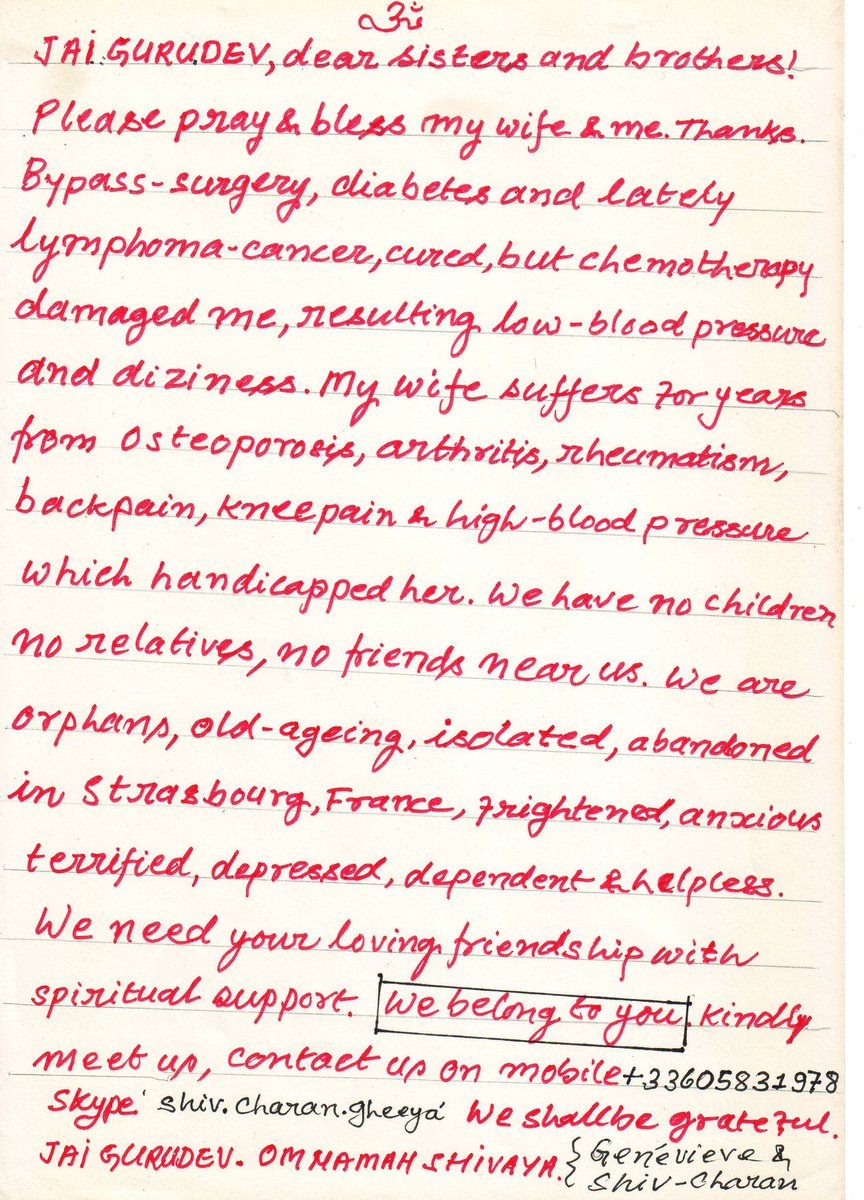 ॐ
JAI GURUDEV, dear sisters and brothers!
Please pray & bless my wife & me. Thanks.
Bypass-surgery, diabetes and lately
lymphoma-cancer, cured, but chemotherapy
damaged me, resulting low-blood pressure
and diziness. My wife suffers for years
from osteoporosis, arthritis, rheumatism,
backpain, kneepain & high-blood pressure
which handicapped her. We have no children
no relatives, no friends near us. We are
orphans, old-ageing, isolated, abandoned
in Strasbourg, France, frightened, anxious
terrified, depressed, dependent & helpless.
We need your loving friendship with
spiritual support. We belong to you. Kindly
meet us, contact us on mobile +33605831978
Skype 'shiv.charan.gheeya' We shall be grateful.
JAI GURUDEV. OM NAMAH SHIVAYA. { Genévieve &
Shiv-Charan